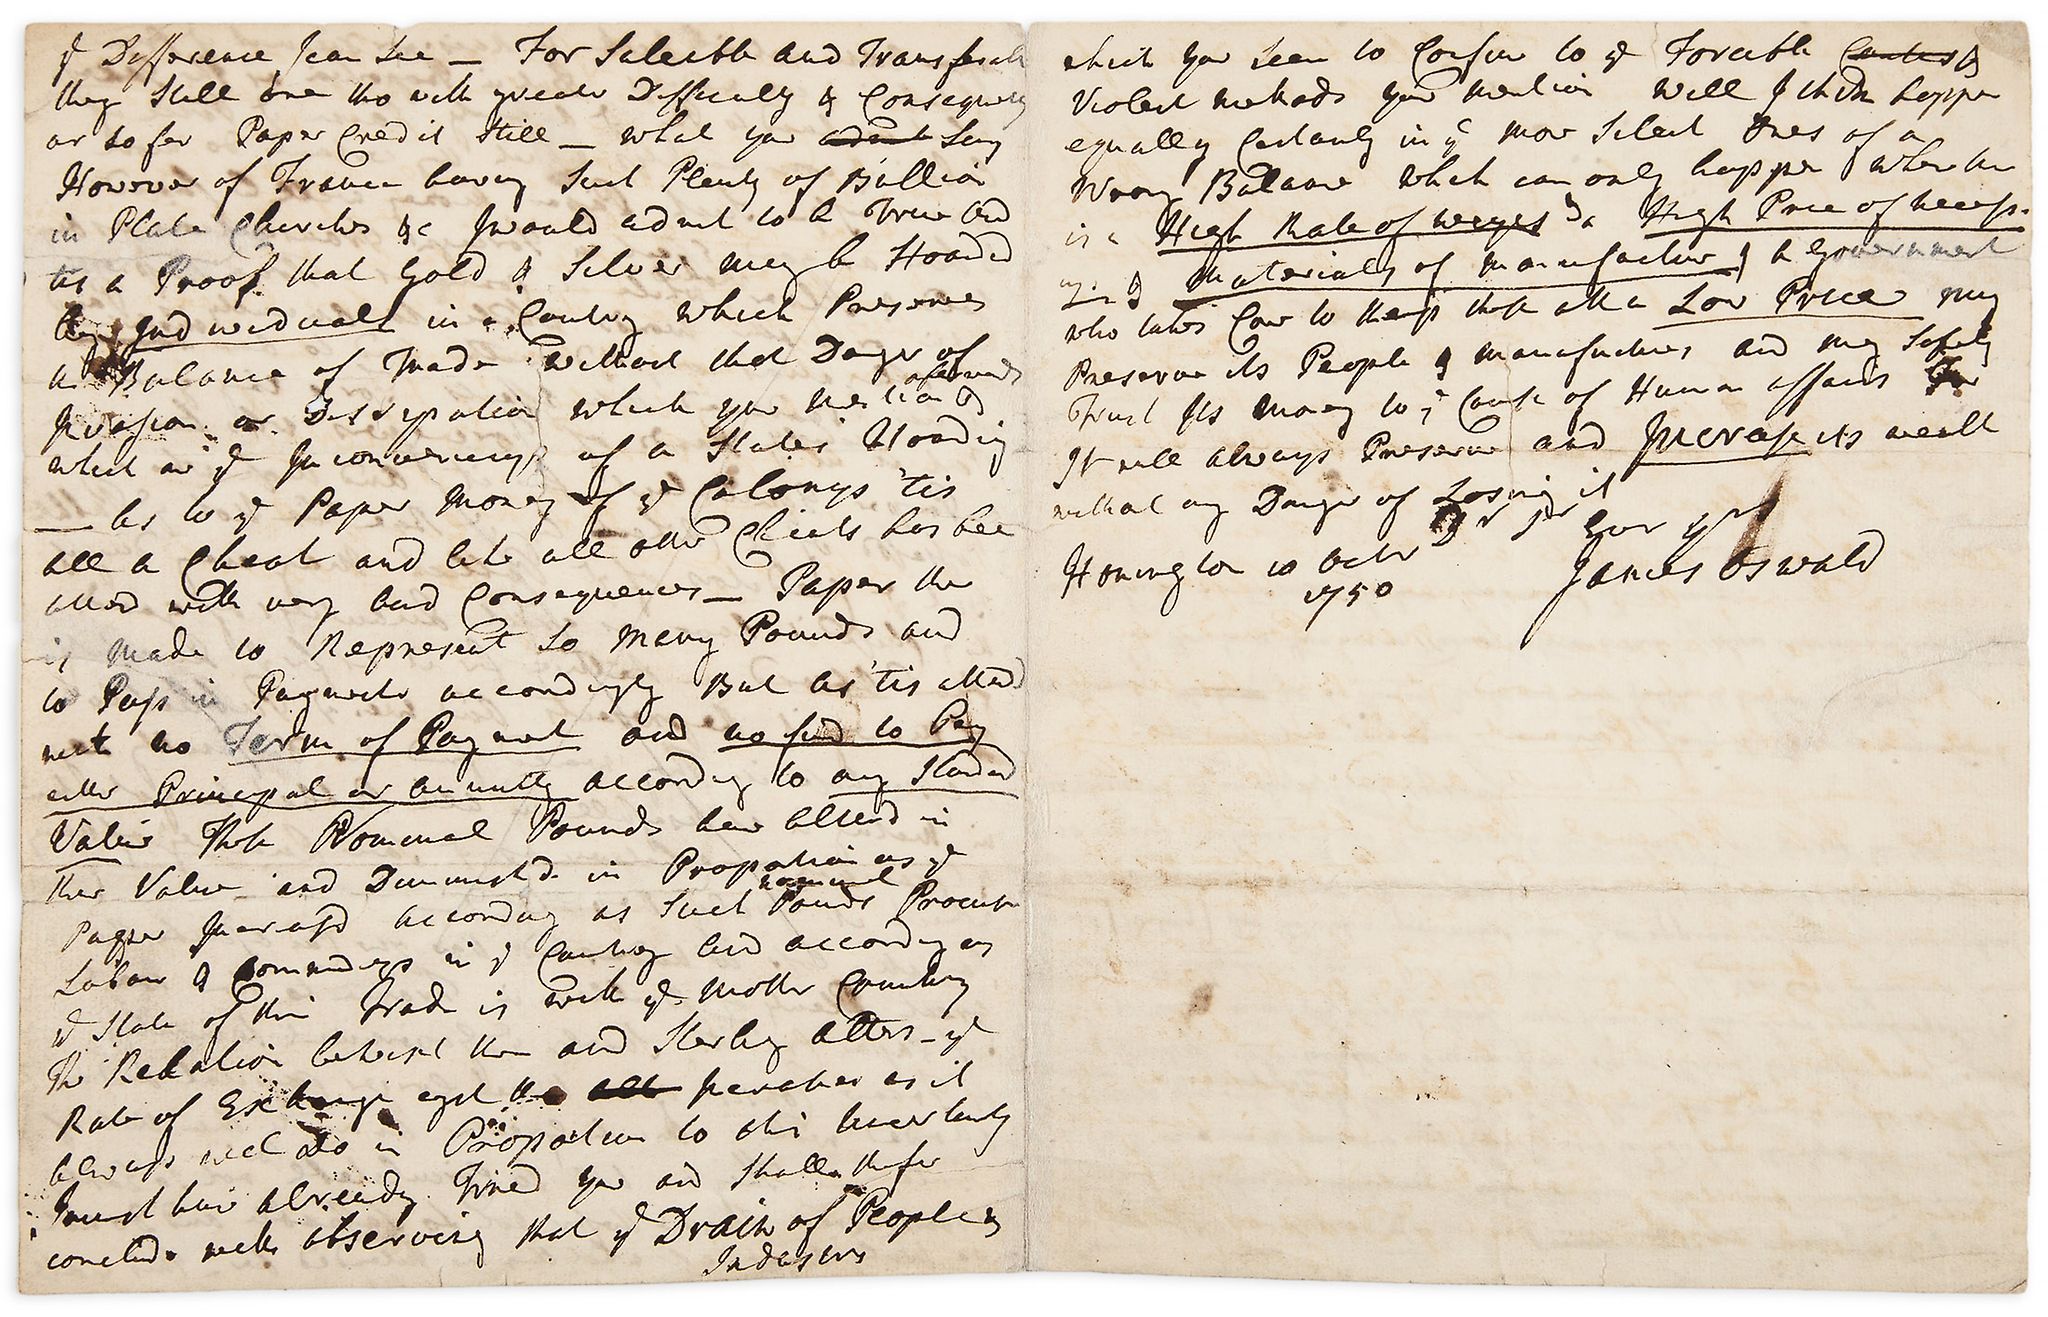 ye Difference I can See — For Saleable and Transferable
they Still are tho with greater Difficulty & Consequently
are so far Paper Credit Still — What you admit Say
However of France having Such Plenty of Bullion
in Plate Churches &c I would admit to be True and
tis a Proof that Gold & Silver may be Hoarded
by Individuals in a Country which Preserves
the Ballance of Trade without that Danger of
Invasion or Dissipation which you mention afterwards and
which are ye Inconveniencys of a States Hoarding
— As to ye Paper Money of ye Colonys 'tis
all a Cheat and like all other Cheats has been
attend with very bad Consequences — Paper there
is made to Represent so many Pounds and
to Pass in Payments accordingly But as 'tis attend
with no Term of Payment and no fund to Pay
either Principal or annuity according to any Standard
Value These Nominal Pounds have alterd in
their Value and Diminishd in Proportion as ye
Paper Increasd according as Such nominal Pounds Procure
Labour & Commoditys in ye Country and according as
ye State of their Trade is with ye Mother Country
The Relation betwixt them and Sterling alters — ye
Rate of Exchange agst the all Increases as it
always will do in Proportion to this Uncertainty
I must have already Tired you and Shall therefore
conclude with observing that ye Drain of People &
Industry
which you Seem to Confine to ye Forcible Causes &
Violent methods you mention will I think happen
equally Certainly in ye more Silent Ones of a
Wrong Balance which can only happen when there
is a High Rate of wages & a High Price of necessarys
& Materials of manufacture & a Government
who takes Care to keep these att a Low Price may
Preserve its People & manufactures and may Safely
Trust Its money to ye Course of Human affairs For
It will always Preserve and Increase its wealth
without any Danger of Losing it
Dr Sr Ever yrs
Honington 10 Octr James Oswald
1750